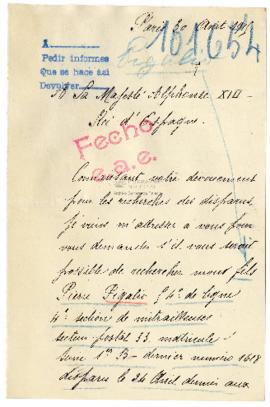 Paris 30 Août 191
A
Pedir informes
Que se hace así
Devolver
161654
Figalis
A Sa Majesté Alphonse XIII
Roi d'Espagne.
Fecho
e.a.e.
Connaissant votre dévouement
pour les recherches des disparus
Je viens m'adresser a vous pour
vous demander s'il vous serait
possible de rechercher mont fils
Pierre Figalis 4e de ligne
4e section de mitrailleuses
secteur postal 33 matricule
1er B - dernier numéro 1618
disparu le 24 Avril dernier aux